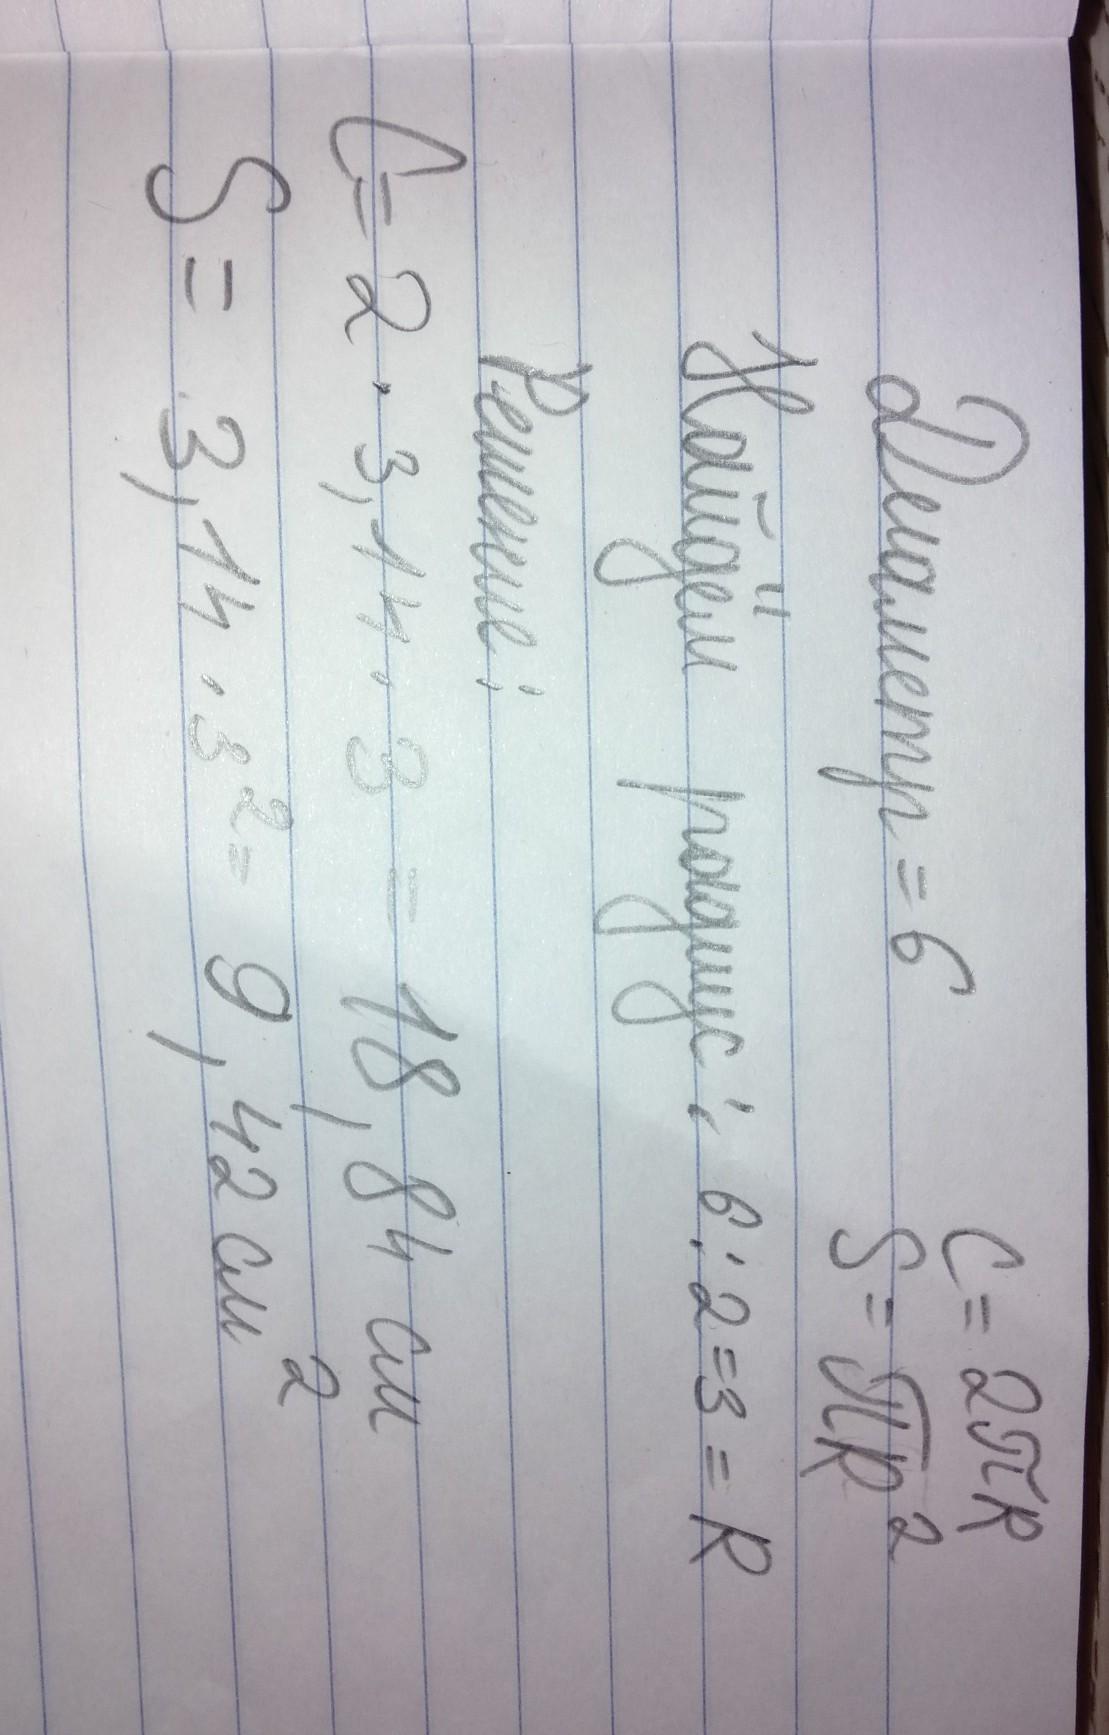 C = 2πR
Диаметр = 6
S = πR²
Найдём радиус: 6 : 2 = 3 = R
Решение:
C = 2 · 3,14 · 3 = 18,84 см
S = 3,14 · 3² = 9,42 см²